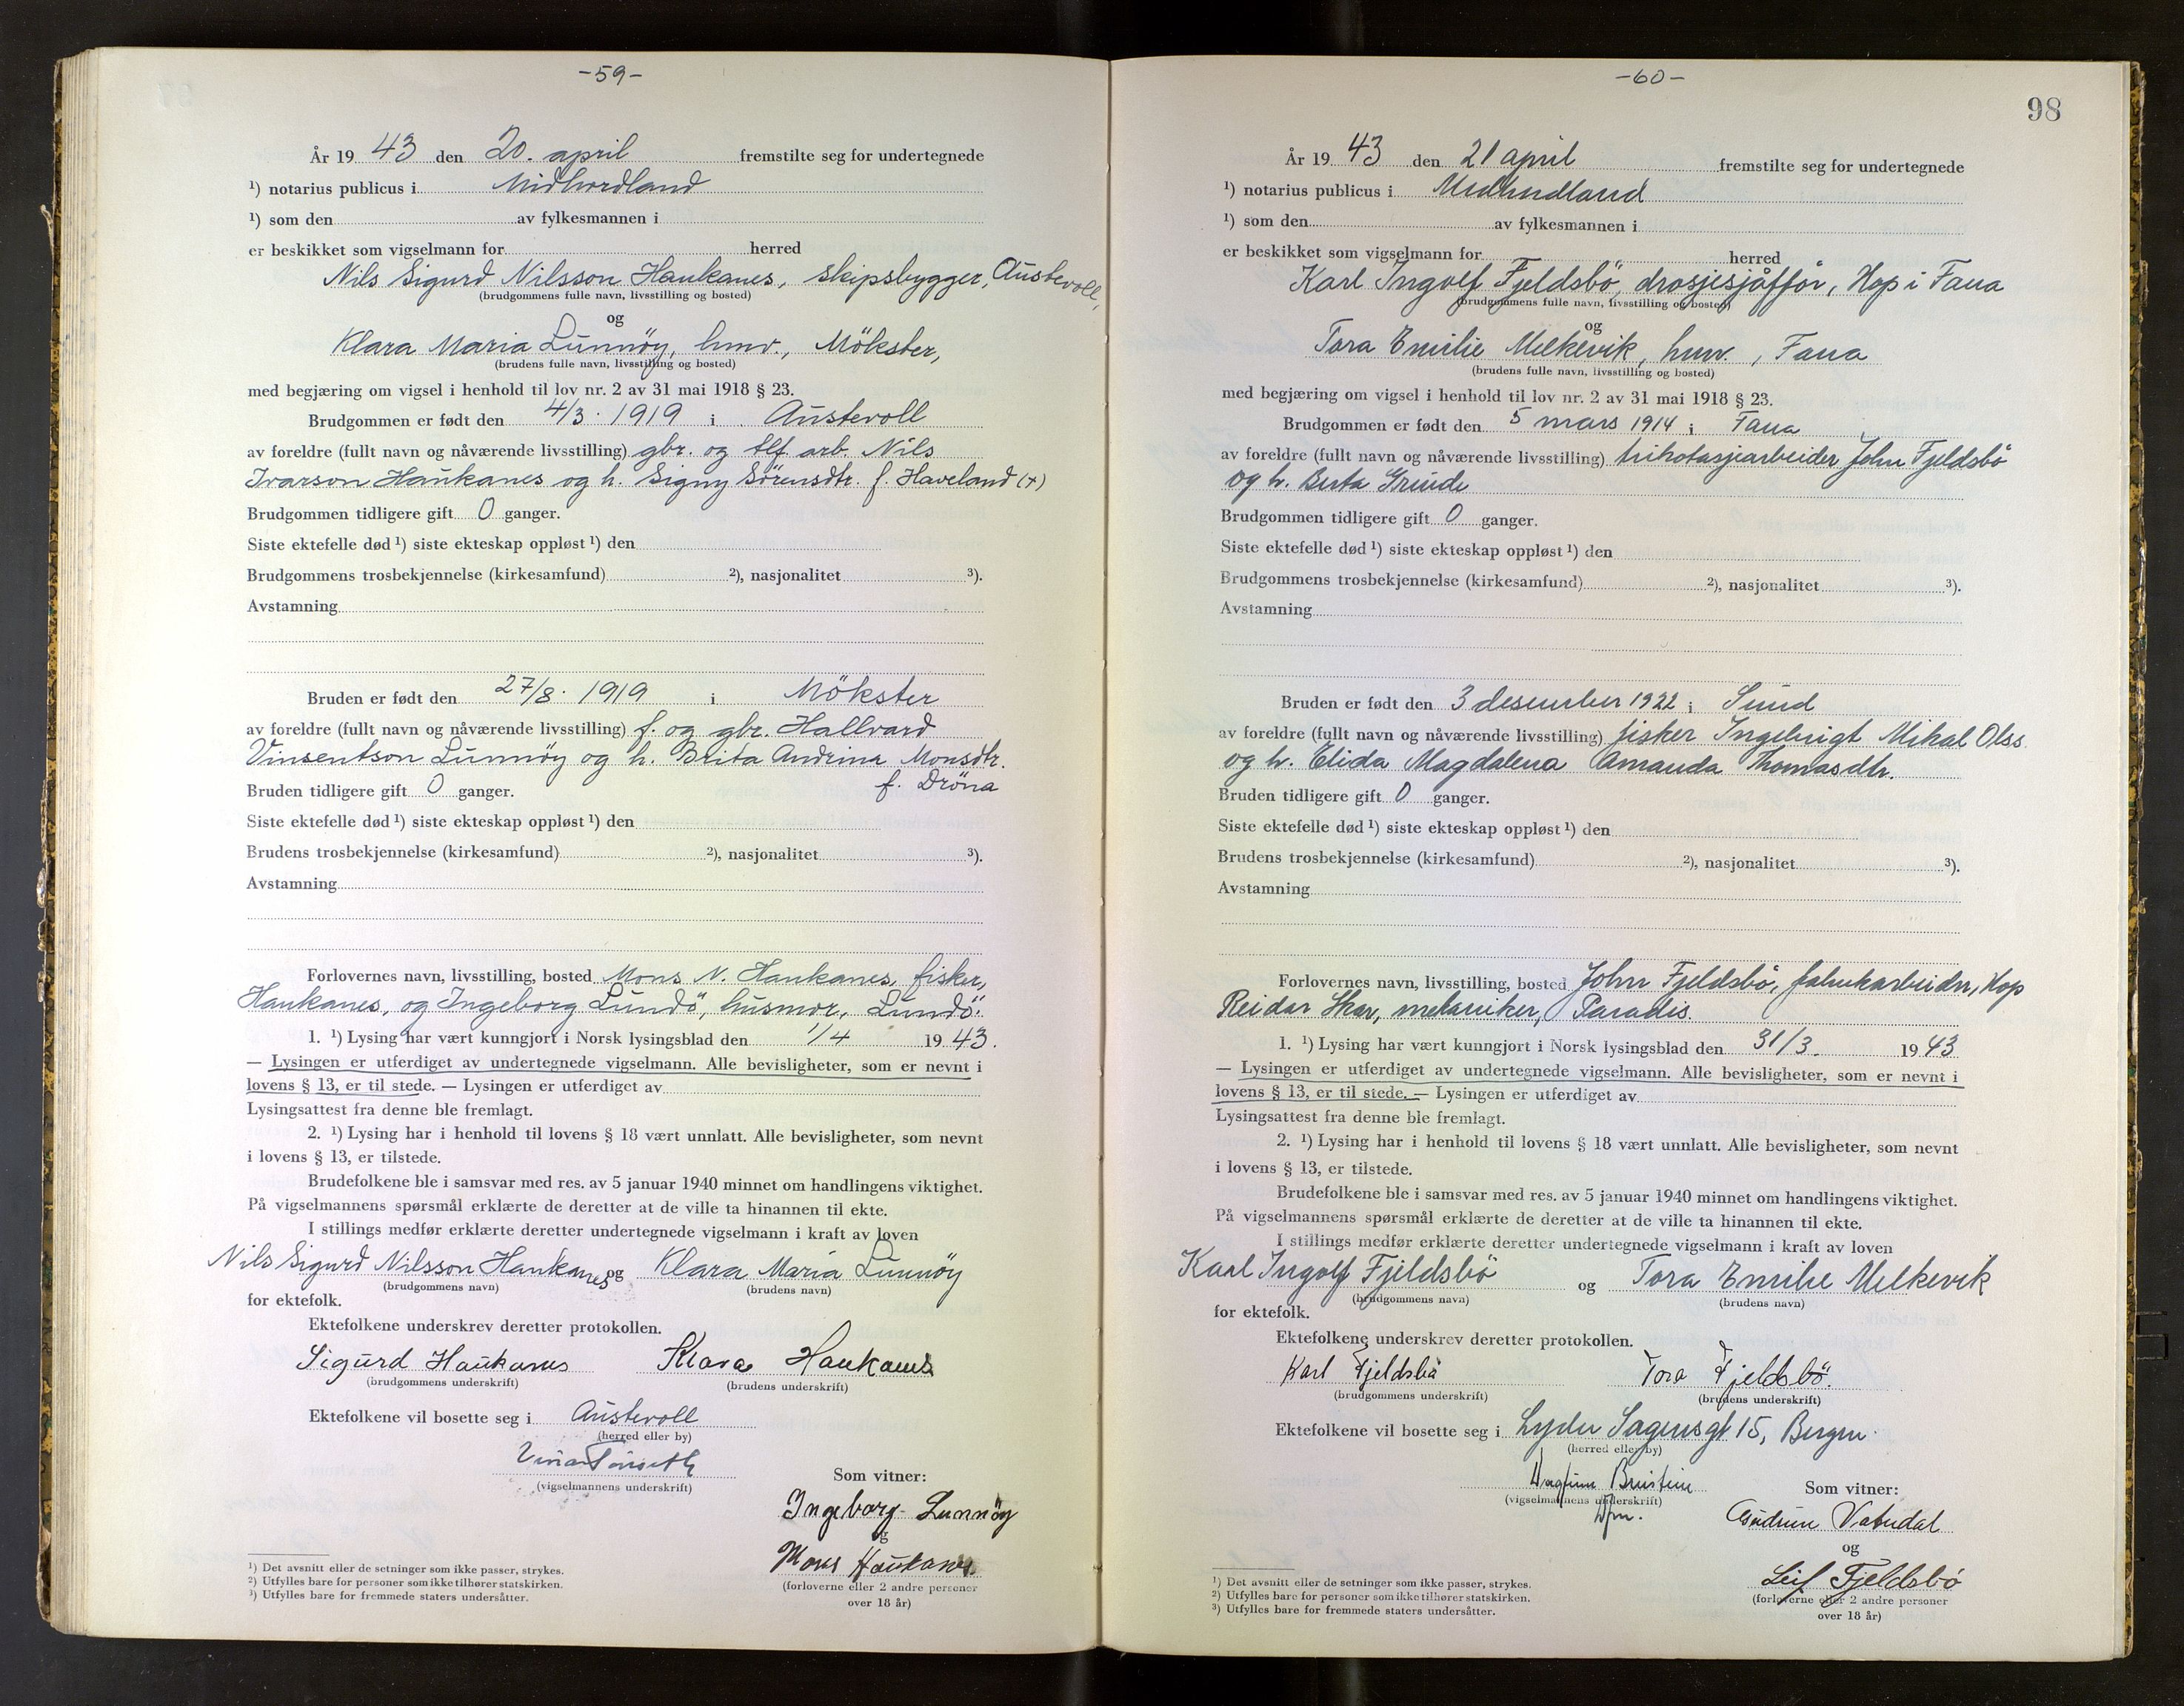 -59-
År 19 43 den 20. april fremstilte seg for undertegnede
¹) notarius publicus i Midhordland
¹) som den av fylkesmannen i
er beskikket som vigselmann for herred
Nils Sigurd Nilsson Haukanes, skipsbygger, Austevoll,
(brudgommens fulle navn, livsstilling og bosted)
og
Klara Maria Lunnöy, hmv., Mökster,
(brudens fulle navn, livsstilling og bosted)
med begjæring om vigsel i henhold til lov nr. 2 av 31 mai 1918 § 23.
Brudgommen er født den 4/3. 1919 i Austevoll
av foreldre (fullt navn og nåværende livsstilling) gbr. og tlf. arb. Nils
Ivarson Haukanes og h. Signy Sörensdtr. f. Haveland (+)
Brudgommen tidligere gift 0 ganger.
Siste ektefelle død ¹) siste ekteskap oppløst ¹) den
Brudgommens trosbekjennelse (kirkesamfund) ²), nasjonalitet ³).
Avstamning
Bruden er født den 27/8. 1919 i Mökster
av foreldre (fullt navn og nåværende livsstilling) f. og gbr. Hallvard
Vinsentson Lunnöy og h. Brita Andrina Monsdtr.
f. Dröna
Bruden tidligere gift 0 ganger.
Siste ektefelle død ¹) siste ekteskap oppløst ¹) den
Brudens trosbekjennelse (kirkesamfund) ²), nasjonalitet ³).
Avstamning
Forlovernes navn, livsstilling, bosted Mons N. Haukanes, fisker,
Haukanes, og Ingeborg Lundö, husmor, Lundö.
1. ¹) Lysing har vært kunngjort i Norsk lysingsblad den 1/4 19 43.
— Lysingen er utferdiget av undertegnede vigselmann. Alle bevisligheter, som er nevnt i
lovens § 13, er til stede. — Lysingen er utferdiget av
Lysingsattest fra denne ble fremlagt.
2. ¹) Lysing har i henhold til lovens § 18 vært unnlatt. Alle bevisligheter, som nevnt
i lovens § 13, er tilstede.
Brudefolkene ble i samsvar med res. av 5 januar 1940 minnet om handlingens viktighet.
På vigselmannens spørsmål erklærte de deretter at de ville ta hinannen til ekte.
I stillings medfør erklærte deretter undertegnede vigselmann i kraft av loven
Nils Sigurd Nilsson Haukanes og Klara Maria Lunnöy
(brudgommens navn) (brudens navn)
for ektefolk.
Ektefolkene underskrev deretter protokollen.
Sigurd Haukanes Klara Haukanes
(brudgommens underskrift) (brudens underskrift)
Ektefolkene vil bosette seg i Austevoll
(herred eller by)
(vigselmannens underskrift)
Som vitner:
Ingeborg Lunnöy
og
Mons Haukanes
(forloverne eller 2 andre personer
over 18 år)
¹) Det avsnitt eller de setninger som ikke passer, strykes.
²) Utfylles bare for personer som ikke tilhører statskirken.
³) Utfylles bare for fremmede staters undersåtter.
-60-
98
År 19 43 den 21 april fremstilte seg for undertegnede
¹) notarius publicus i Midhordland
¹) som den av fylkesmannen i
er beskikket som vigselmann for herred
Karl Ingolf Fjeldsbö, drosjesjåfför, Hop i Fana
(brudgommens fulle navn, livsstilling og bosted)
og
Tora Emilie Melkevik, hmv., Fana
(brudens fulle navn, livsstilling og bosted)
med begjæring om vigsel i henhold til lov nr. 2 av 31 mai 1918 § 23.
Brudgommen er født den 5 mars 1914 i Fana
av foreldre (fullt navn og nåværende livsstilling) trikotasjearbeider John Fjeldsbö
og h. Berta Grinde
Brudgommen tidligere gift 0 ganger.
Siste ektefelle død ¹) siste ekteskap oppløst ¹) den
Brudgommens trosbekjennelse (kirkesamfund) ²), nasjonalitet ³).
Avstamning
Bruden er født den 3 desember 1922 i Sund
av foreldre (fullt navn og nåværende livsstilling) fisker Ingebrigt Mikal Olss.
og h. Elida Magdalena Amanda Thomasdtr.
Bruden tidligere gift 0 ganger.
Siste ektefelle død ¹) siste ekteskap oppløst ¹) den
Brudens trosbekjennelse (kirkesamfund) ²), nasjonalitet ³).
Avstamning
Forlovernes navn, livsstilling, bosted John Fjeldsbö, fabrikarbeider, Hop
Reidar Skar, mekaniker, Paradis
1. ¹) Lysing har vært kunngjort i Norsk lysingsblad den 31/3. 19 43
— Lysingen er utferdiget av undertegnede vigselmann. Alle bevisligheter, som er nevnt i
lovens § 13, er til stede. — Lysingen er utferdiget av
Lysingsattest fra denne ble fremlagt.
2. ¹) Lysing har i henhold til lovens § 18 vært unnlatt. Alle bevisligheter, som nevnt
i lovens § 13, er tilstede.
Brudefolkene ble i samsvar med res. av 5 januar 1940 minnet om handlingens viktighet.
På vigselmannens spørsmål erklærte de deretter at de ville ta hinannen til ekte.
I stillings medfør erklærte deretter undertegnede vigselmann i kraft av loven
Karl Ingolf Fjeldsbö og Tora Emilie Melkevik
(brudgommens navn) (brudens navn)
for ektefolk.
Ektefolkene underskrev deretter protokollen.
Karl Fjeldsbö Tora Fjeldsbö.
(brudgommens underskrift) (brudens underskrift)
Ektefolkene vil bosette seg i Lyder Sagensgt 15, Bergen.
(herred eller by)
(vigselmannens underskrift)
Som vitner:
Gudrun Vatndal
og
Leif Fjeldsbö
(forloverne eller 2 andre personer
over 18 år)
¹) Det avsnitt eller de setninger som ikke passer, strykes.
²) Utfylles bare for personer som ikke tilhører statskirken.
³) Utfylles bare for fremmede staters undersåtter.